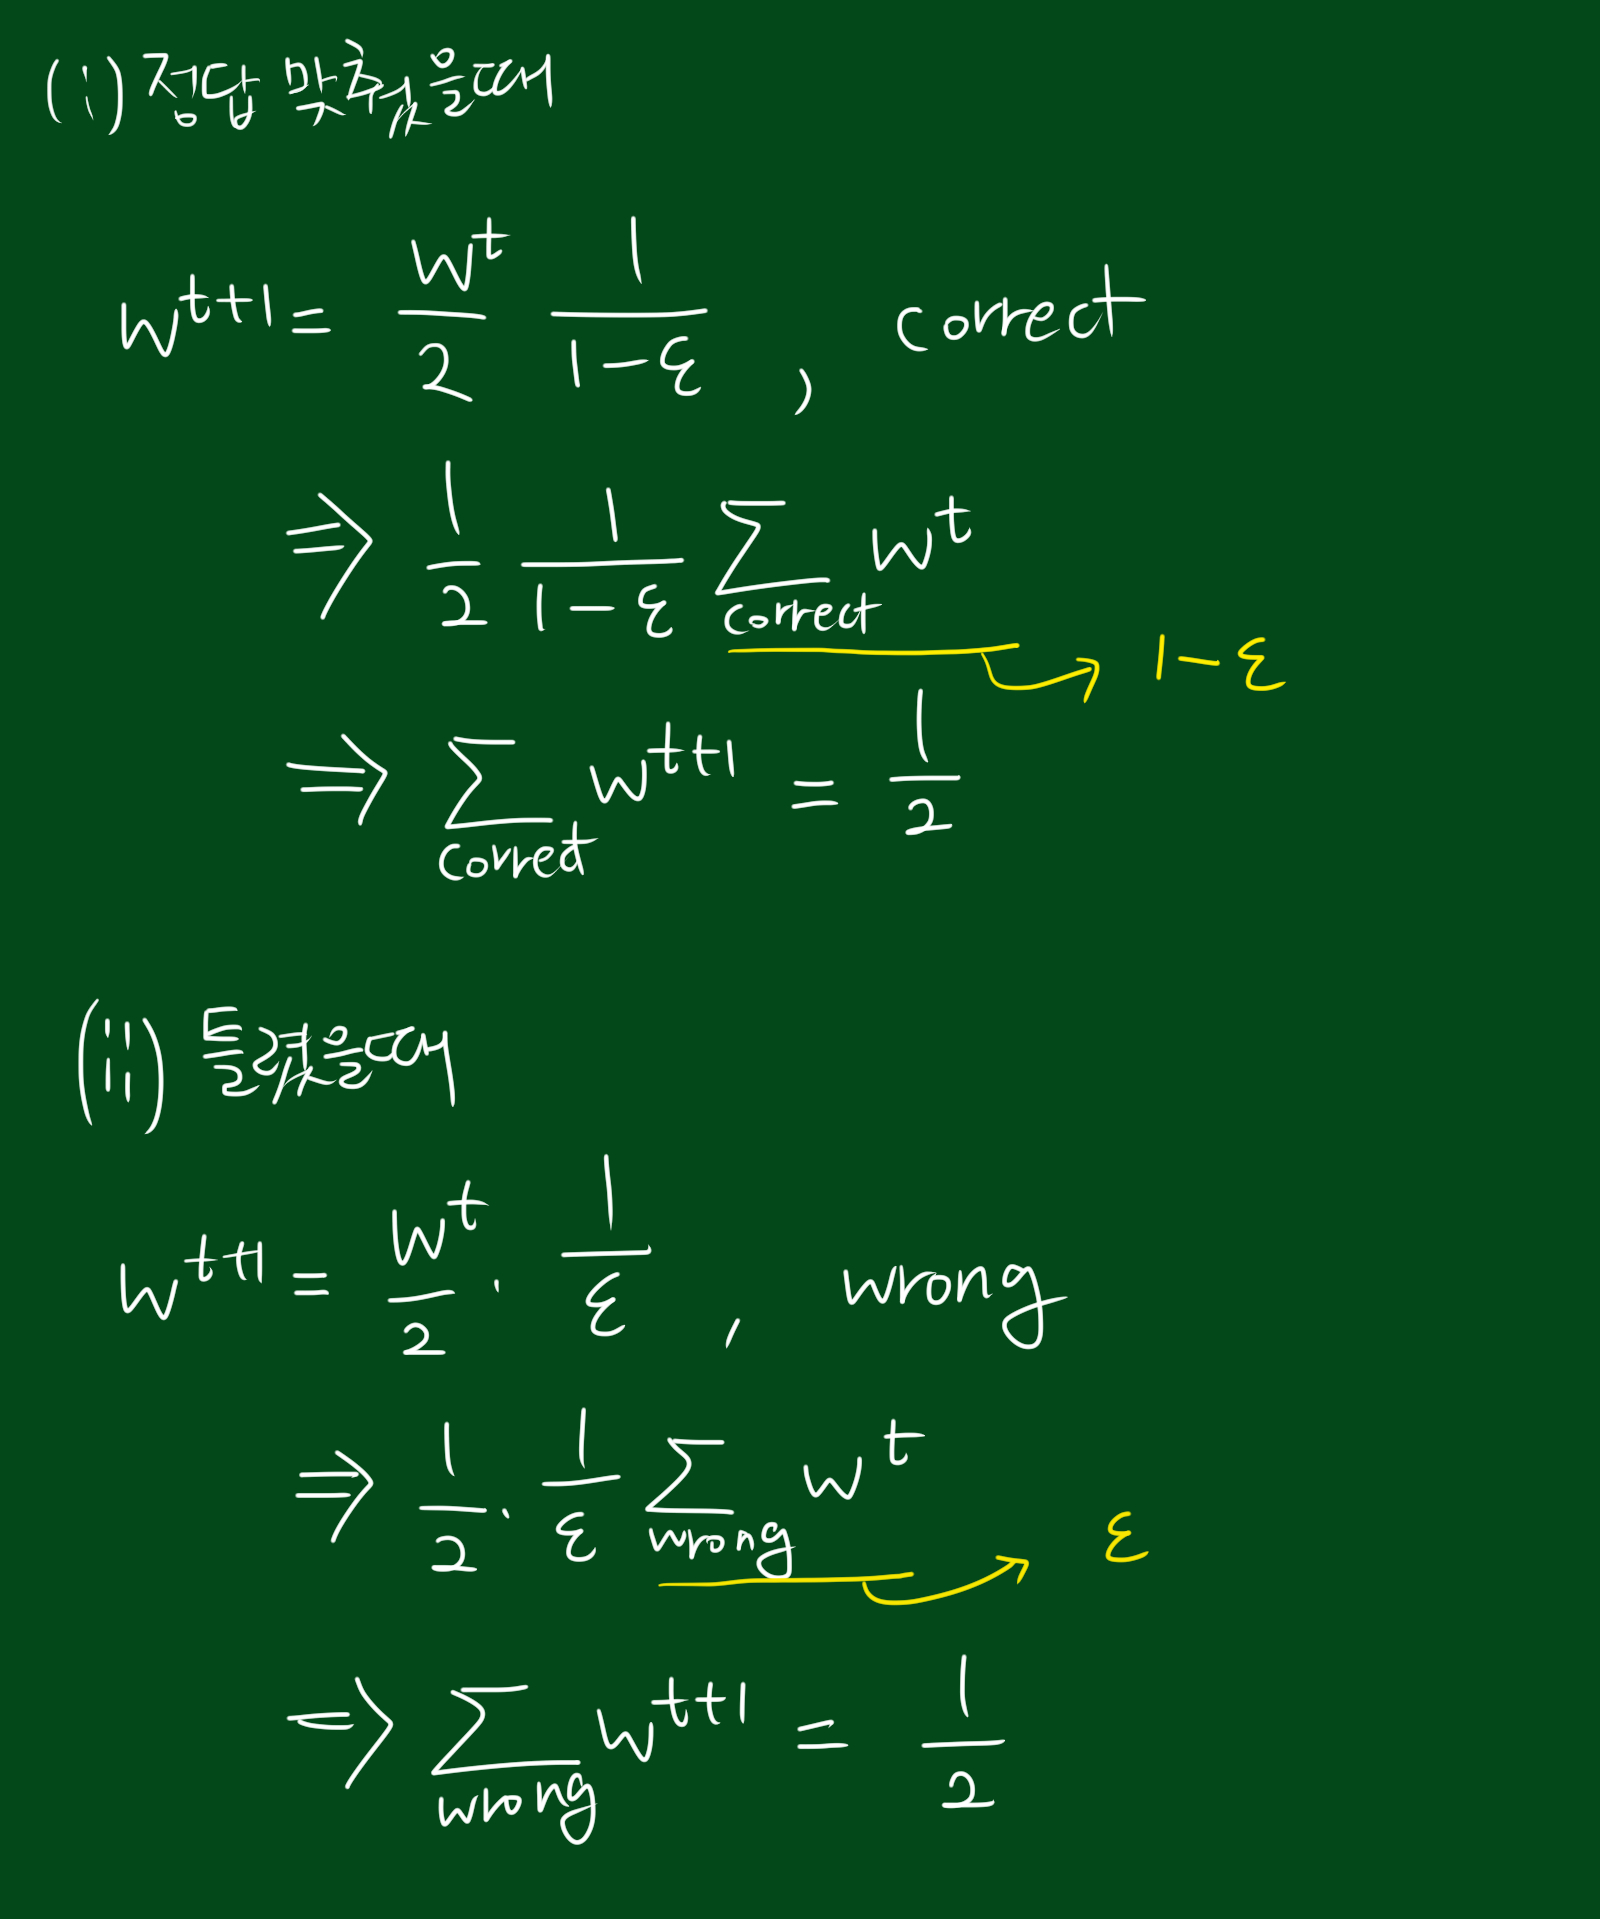 (i) 정답 맞추었을때
w^{t+1} = \frac{w^t}{2} \frac{1}{1-ε} , correct
⇒ \frac{1}{2} \frac{1}{1-ε} \sum_{correct} w^t → 1-ε
⇒ \sum_{correct} w^{t+1} = \frac{1}{2}
(ii) 틀렸을때
w^{t+1} = \frac{w^t}{2} · \frac{1}{ε} , wrong
⇒ \frac{1}{2} · \frac{1}{ε} \sum_{wrong} w^t → ε
⇒ \sum_{wrong} w^{t+1} = \frac{1}{2}